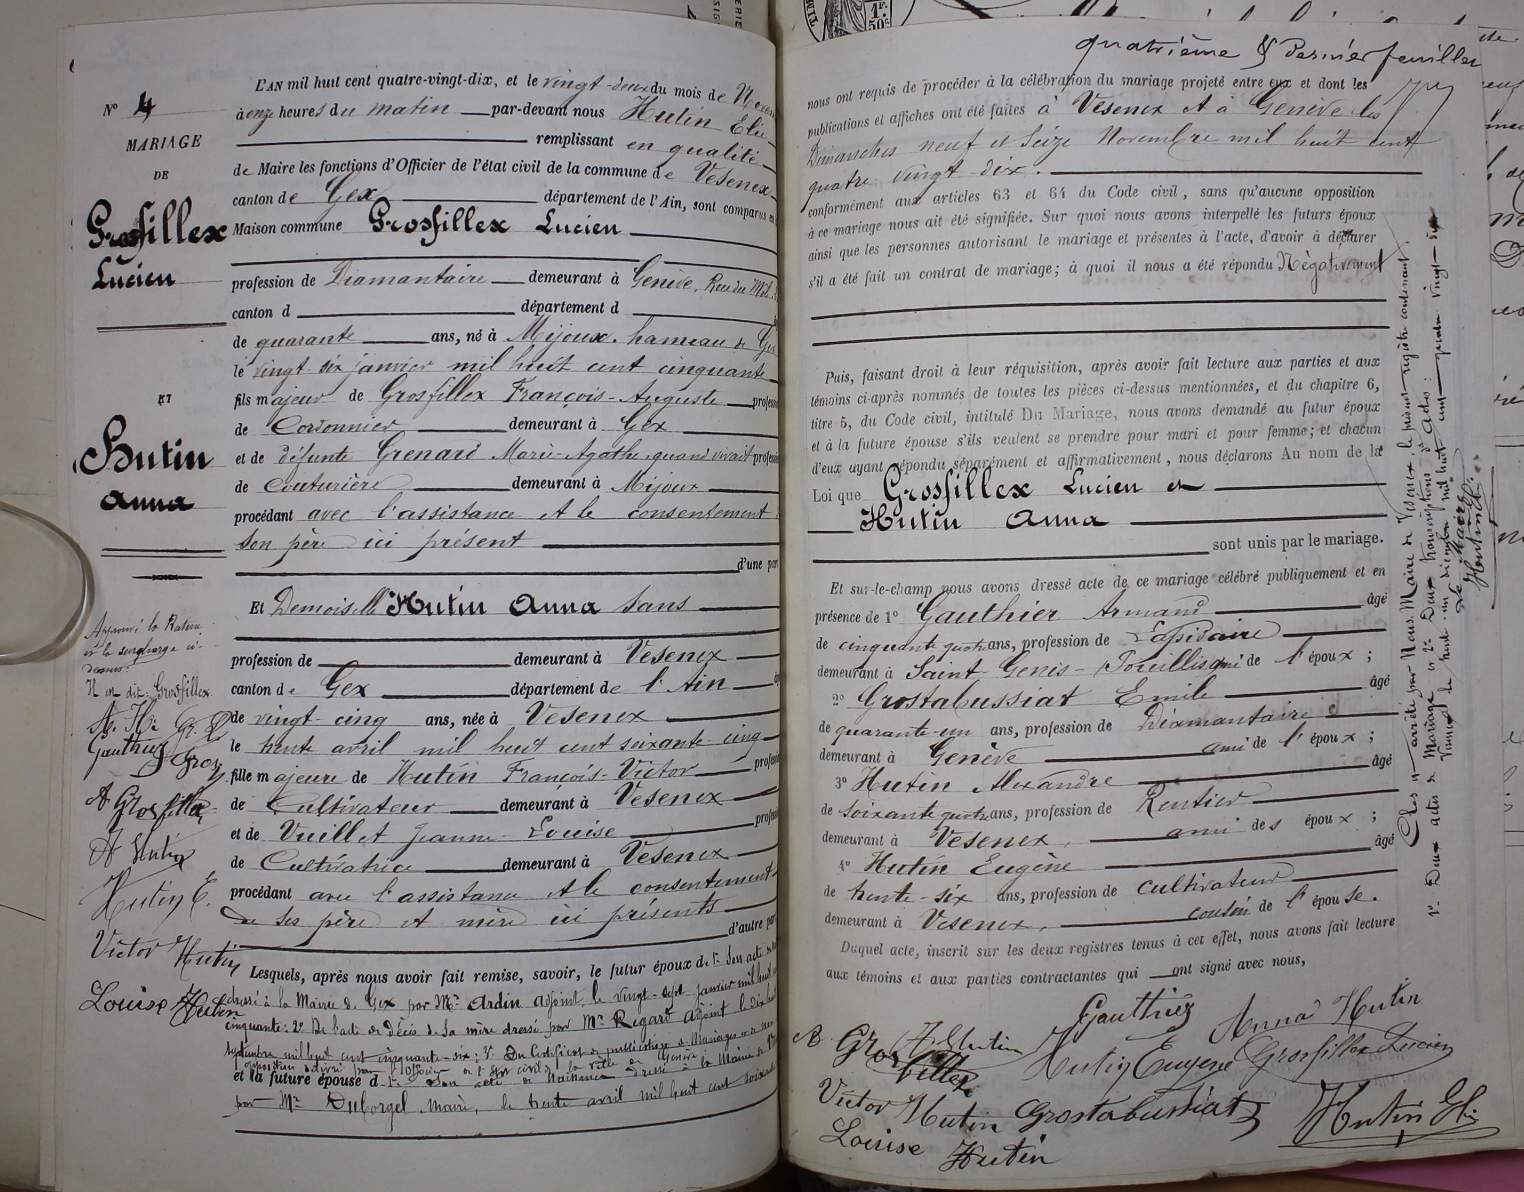 L'AN mil huit cent quatre-vingt-dix, et le vingt-deux du mois de
à onze heures du matin par-devant nous Hutin Elie
remplissant en qualité
de Maire les fonctions d'Officier de l'état civil de la commune de Vesenex
canton de Gex département de l'Ain, sont comparus en
Maison commune Grosfillex Lucien
profession de Diamantaire demeurant à Genève, Rue du
canton d département d
de quarante ans, né à Mijoux, hameau de
le vingt six janvier mil huit cent cinquante
fils majeur de Grosfillex François-Auguste
de Cordonnier demeurant à Gex
et de défunte Grenard Marie-Agathe quand vivait
de Couturière demeurant à Mijoux
procédant avec l'assistance et le consentement
son père ici présent
d'une part
Et Demoiselle Hutin Anna sans
profession de demeurant à Vesenex
canton de Gex département de l'Ain
de vingt-cinq ans, née à Vesenex
le trente avril mil huit cent soixante-cinq
fille majeure de Hutin François-Victor
de Cultivateur demeurant à Vesenex
et de Vuillet Jeanne-Louise
de Cultivatrice demeurant à Vesenex
procédant avec l'assistance et le consentement
de ses père et mère ici présents
d'autre part
Lesquels, après nous avoir fait remise, savoir, le futur époux de 1° Son acte de
dressé à la Mairie de Gex par Mr Ardin Adjoint, le vingt-sept janvier mil huit
cinquante: 2° De l'acte de décès de sa mère dressé par Mr Regard Adjoint le dix huit
septembre mil huit cent cinquante-six: 3° Du Certificat de publication de Mariage
opposition délivré par l'officier de l'état civil de la ville de Genève
et la future épouse d son acte de Naissance dressé à la Mairie de
par Mr Duborgel, maire, le trente avril mil huit cent soixante
N° 4
MARIAGE
DE
Grosfillex
Lucien
ET
Hutin
Anna
Approuvé la Rature
et la surcharge ci-
dessus.
Grosfillex
Gauthier
A Grosfillex
A Hutin
Hutin E.
Victor Hutin
Louise Hutin
quatrième & Dernier feuillet
nous ont requis de procéder à la célébration du mariage projeté entre eux et dont les
publications et affiches ont été faites à Vesenex et à Genève les
Dimanches neuf et Seize Novembre mil huit cent
quatre vingt dix.
conformément aux articles 63 et 64 du Code civil, sans qu'aucune opposition
à ce mariage nous ait été signifiée. Sur quoi nous avons interpellé les futurs époux
ainsi que les personnes autorisant le mariage et présentes à l'acte, d'avoir à déclarer
s'il a été fait un contrat de mariage; à quoi il nous a été répondu Négativement
Puis, faisant droit à leur réquisition, après avoir fait lecture aux parties et aux
témoins ci-après nommés de toutes les pièces ci-dessus mentionnées, et du chapitre 6,
titre 5, du Code civil, intitulé Du Mariage, nous avons demandé au futur époux
et à la future épouse s'ils veulent se prendre pour mari et pour femme; et chacun
d'eux ayant répondu séparément et affirmativement, nous déclarons Au nom de la
Loi que Grosfillex Lucien et
Hutin Anna
sont unis par le mariage.
Et sur-le-champ nous avons dressé acte de ce mariage célébré publiquement et en
présence de 1° Gauthier Armand âgé
de cinquante quatre ans, profession de Lapidaire
demeurant à Saint Genis-Pouilly ami de l'époux;
2° Grostabussiat Emile âgé
de quarante-un ans, profession de Diamantaire
demeurant à Genève ami de l'époux;
3° Hutin Alexandre âgé
de soixante quatre ans, profession de Rentier
demeurant à Vesenex, ami des époux;
4° Hutin Eugène âgé
de trente-six ans, profession de cultivateur
demeurant à Vesenex, cousin de l'épouse.
Duquel acte, inscrit sur les deux registres tenus à cet effet, nous avons fait lecture
aux témoins et aux parties contractantes qui ont signé avec nous,
Gauthier Anna Hutin
A Grosfillex A Hutin Hutin Eugène Grosfillex Lucien
Victor Hutin Grostabussiat Hutin Elie
Louise Hutin
Clos et arrêté par Nous, Maire de Vesenex, le présent registre contenant:
1° Deux actes de Mariage et 2° Deux transcriptions d'actes:
Vesenex le trente-un décembre mil huit cent quatre vingt-dix
Le Maire
Hutin Elie